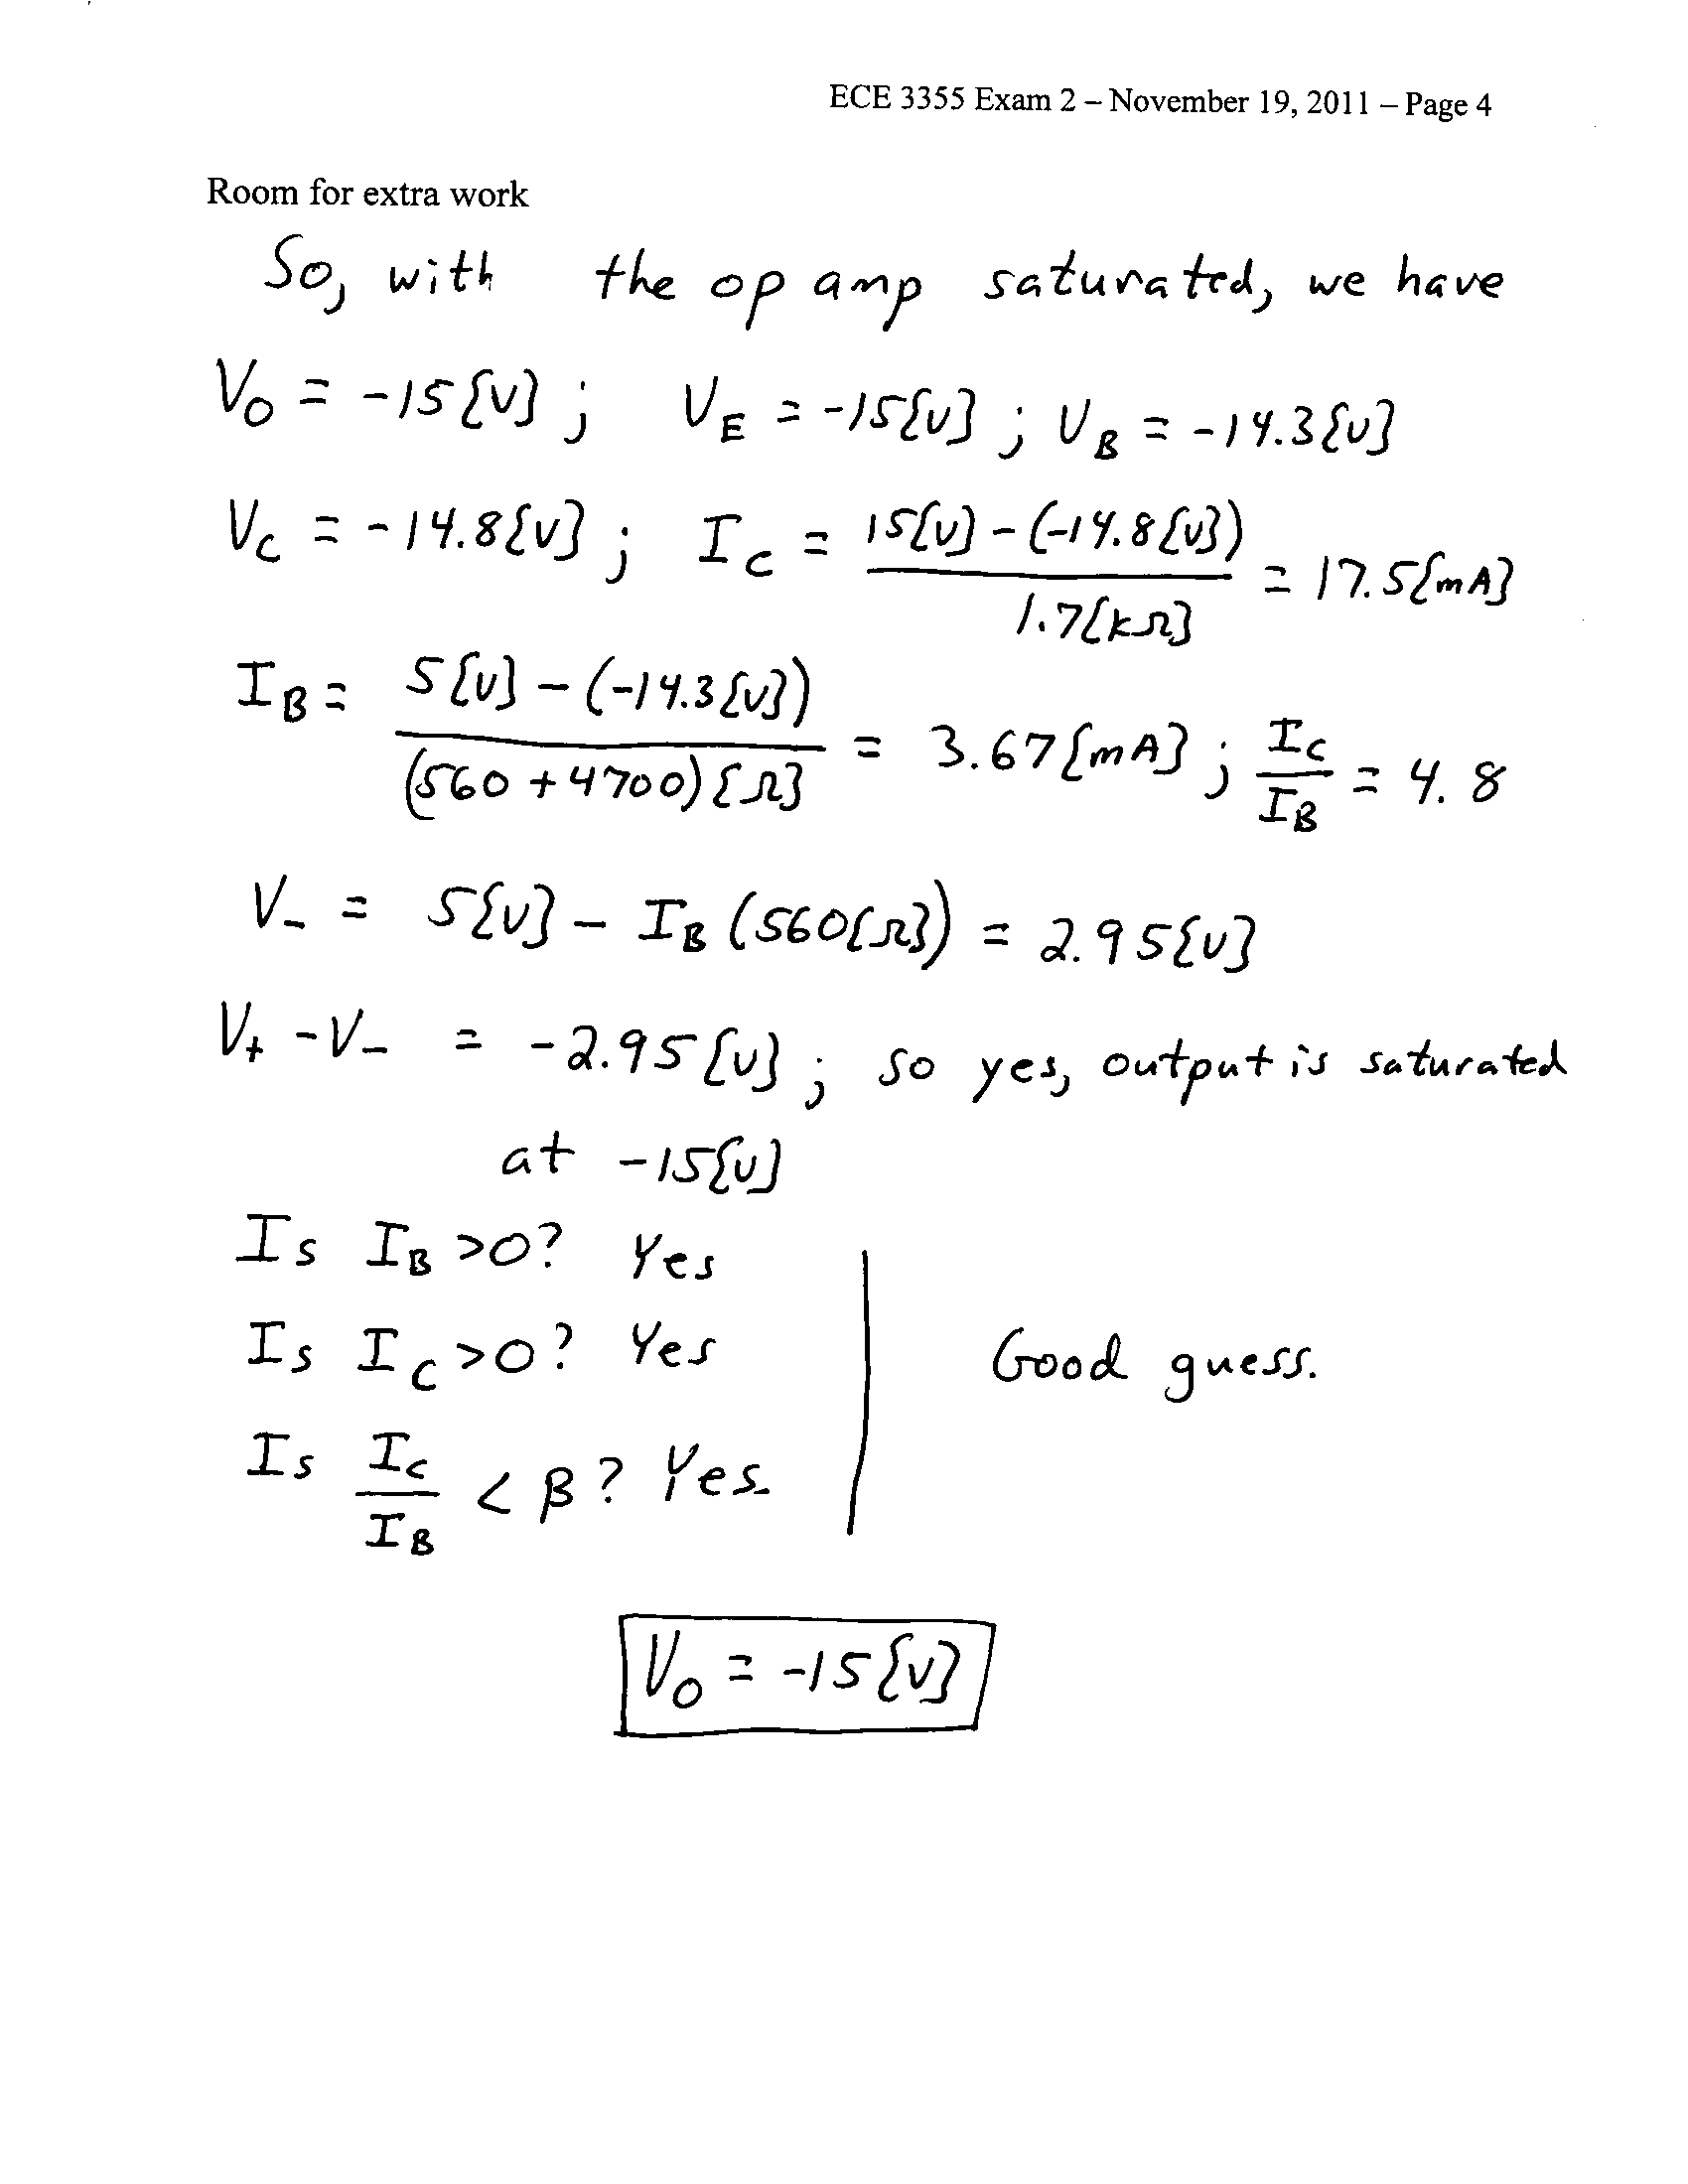 ECE 3355 Exam 2 – November 19, 2011 – Page 4
Room for extra work
So, with the op amp saturated, we have
V_O = -15{V} ; V_E = -15{V} ; V_B = -14.3{V}
V_C = -14.8{V} ; I_C = (15{V} - (-14.8{V})) / 1.7{kΩ} = 17.5{mA}
I_B = (5{V} - (-14.3{V})) / (560 + 4700){Ω} = 3.67{mA} ; I_C / I_B = 4.8
V_- = 5{V} - I_B (560{Ω}) = 2.95{V}
V_+ - V_- = -2.95{V} ; so yes, output is saturated
at -15{V}
Is I_B > 0? Yes
Is I_C > 0? Yes
Good guess.
Is I_C / I_B < β? Yes.
V_O = -15{V}